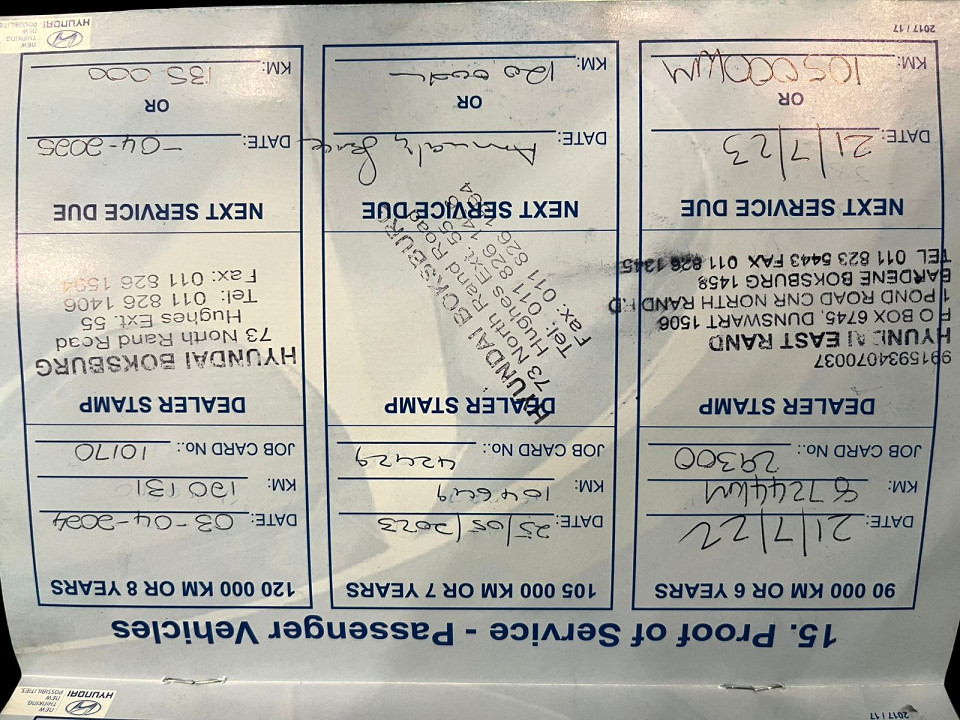 15. Proof of Service - Passenger Vehicles
90 000 KM OR 6 YEARS
DATE: 21/7/22
KM: 87244km
JOB CARD No.: 29300
DEALER STAMP
9915934070037
HYUNDAI EAST RAND
P O BOX 6745, DUNSWART 1506
1 POND ROAD CNR NORTH RAND RD
BARDENE BOKSBURG 1459
TEL 011 823 5443 FAX 011 826 1345
NEXT SERVICE DUE
DATE: 21/7/23
OR
KM: 105000km
105 000 KM OR 7 YEARS
DATE: 25/05/2023
KM: 104649
JOB CARD No.: 42429
DEALER STAMP
HYUNDAI BOKSBURG
73 North Rand Road
Hughes Ext. 55
Tel: 011 826
Fax: 011 826
NEXT SERVICE DUE
DATE:
OR
KM:
120 000 KM OR 8 YEARS
DATE: 03-04-2024
KM: 120131
JOB CARD No.: 10170
DEALER STAMP
HYUNDAI BOKSBURG
73 North Rand Road
Hughes Ext. 55
Tel: 011 826 1406
Fax: 011 826 1594
NEXT SERVICE DUE
DATE: -04-2025
OR
KM: 135 000
2017 / 17
HYUNDAI
NEW
THINKING.
NEW
POSSIBILITIES.
2017 / 17
HYUNDAI
NEW
THINKING.
NEW
POSSIBILITIES.